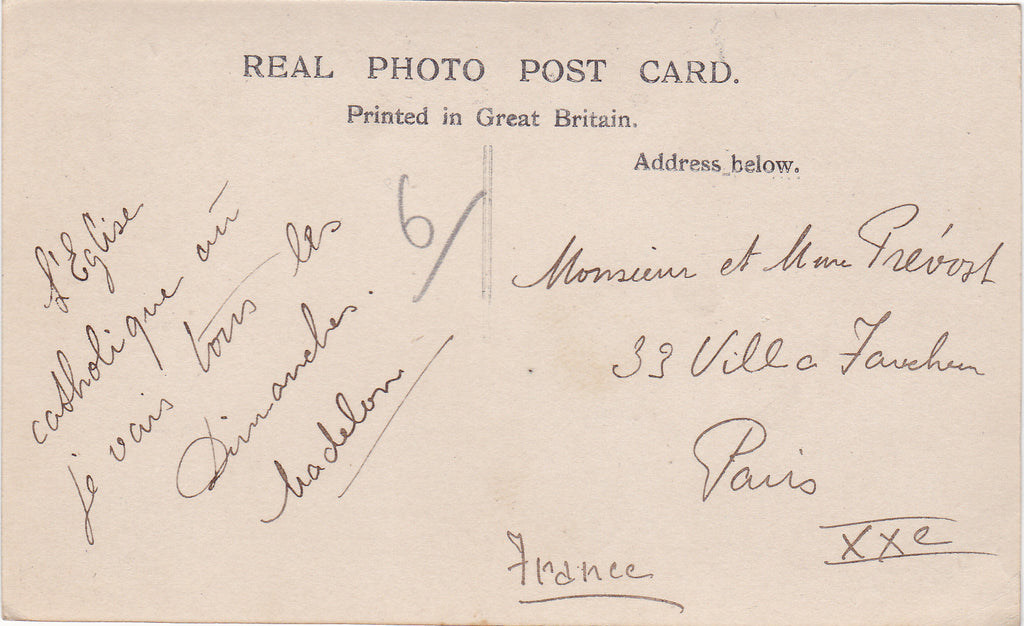 REAL PHOTO POST CARD.
Printed in Great Britain.
Address below.
6/
L'Eglise
catholique où
je vais tous les
Dimanches.
Madelon
Monsieur et Mme Prévost
33 Villa Faucheur
Paris
XXe
France